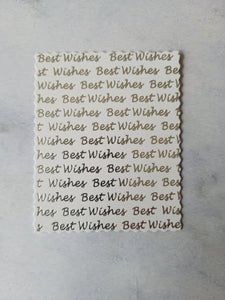 Best Wishes Best Wishes
st Wishes Best Wishes Bes
hes Best Wishes Best Wis
s Best Wishes Best Wishes
Best Wishes Best Wishes
est Wishes Best Wishes Be
ishes Best Wishes Best W
hes Best Wishes Best Wish
Best Wishes Best Wishes
t Wishes Best Wishes Bes
hes Best Wishes Best Wis
s Best Wishes Best Wishe